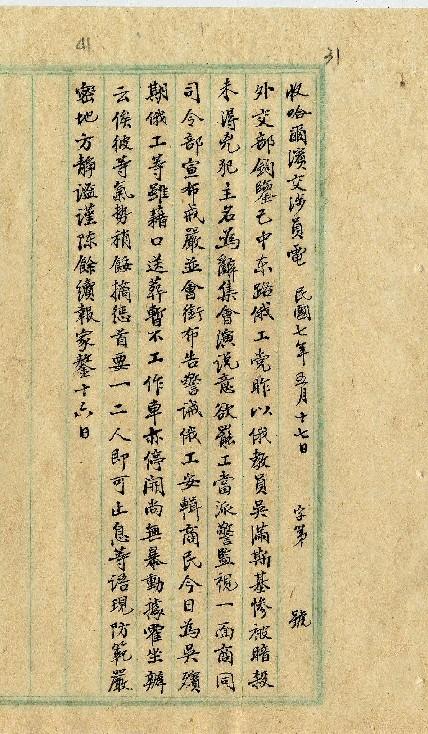 31
41
收哈爾濱交涉員電 民國七年五月十七日 字第 號
外交部鈞鑒己申東路俄工党昨以俄教員吳滿斯基慘被暗殺
未得兇犯主名為辭集會演説意欲罷工當派警監視一面商同
司令部宣布戒嚴並會銜布告警誡俄工安輯商民今日為吳殯
期俄工等雖藉口送葬暫不工作車亦停開尚無暴動據霍坐辦
云俟彼等氣勢稍餒摘懲首要一二人即可止息等語現防範嚴
密地方靜謐謹陳餘續報家鏊十六日